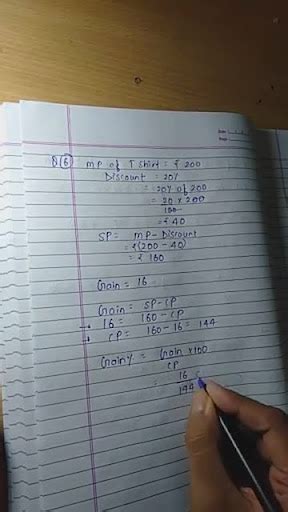 Q(6) MP of T Shirt = ₹ 200
Discount = 20%
= 20% of 200
= 20 x 200
100
= ₹ 40
SP = MP - Discount
= ₹(200 - 40)
= ₹ 160
Gain = 16
Gain = SP - CP
→ 16 = 160 - CP
→ CP = 160 - 16 = 144
Gain% = Gain x 100
CP
= 16
144